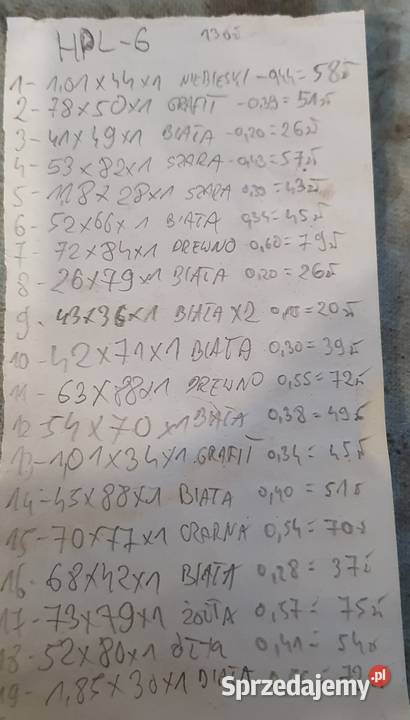 HPL-6 130zł
1- 1,01x44x1 NIEBIESKI -0,44= 58zł
2- 78x50x1 GRAFIT -0,39= 51zł
3- 41x49x1 BIAŁA -0,20= 26zł
4- 53x82x1 SZARA -0,43= 57zł
5- 118x28x1 SZARA = 43zł
6- 52x66x1 BIAŁA 0,34= 45zł
7- 72x84x1 DREWNO 0,60= 79zł
8- 26x79x1 BIAŁA 0,20= 26zł
9- 43x36x1 BIAŁA x2 = 20zł
10- 42x71x1 BIAŁA 0,30= 39zł
11- 63x88x1 DREWNO 0,55= 72zł
12 54x70x1 BIAŁA 0,38= 49zł
13- 1,01x34x1 GRAFIT 0,34= 45zł
14- 45x88x1 BIAŁA 0,40= 51zł
15- 70x77x1 CZARNA 0,54= 70zł
16- 68x42x1 BIAŁA 0,28= 37zł
17- 73x79x1 ŻÓŁTA 0,57= 75zł
18- 52x80x1 0,41= 54zł
19- 1,85x30x1 BIAŁA
Sprzedajemy.pl